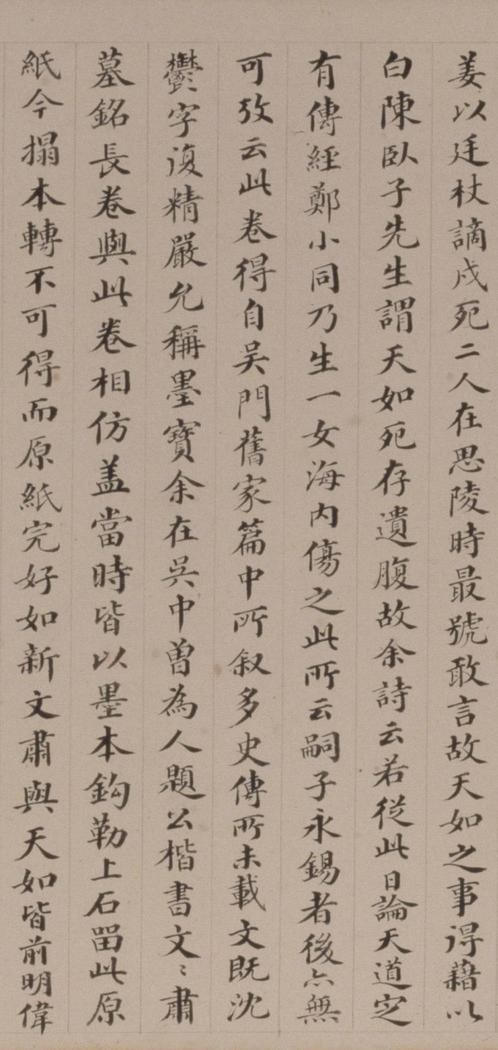 姜以廷杖謫戍死二人在思陵時最號敢言故天如之事得藉以
白陳臥子先生謂天如死存遺腹故余詩云若從此日論天道定
有傳經鄭小同乃生一女海内傷之此所云嗣子永錫者後亦無
可攷云此卷得自吳門舊家篇中所叙多史傳所未載文既沈
鬱字復精嚴允稱墨寶余在吳中曽為人題公楷書文〻肅
墓銘長卷與此卷相仿盖當時皆以墨本鈎勒上石留此原
紙今搨本轉不可得而原紙完好如新文肅與天如皆前明偉